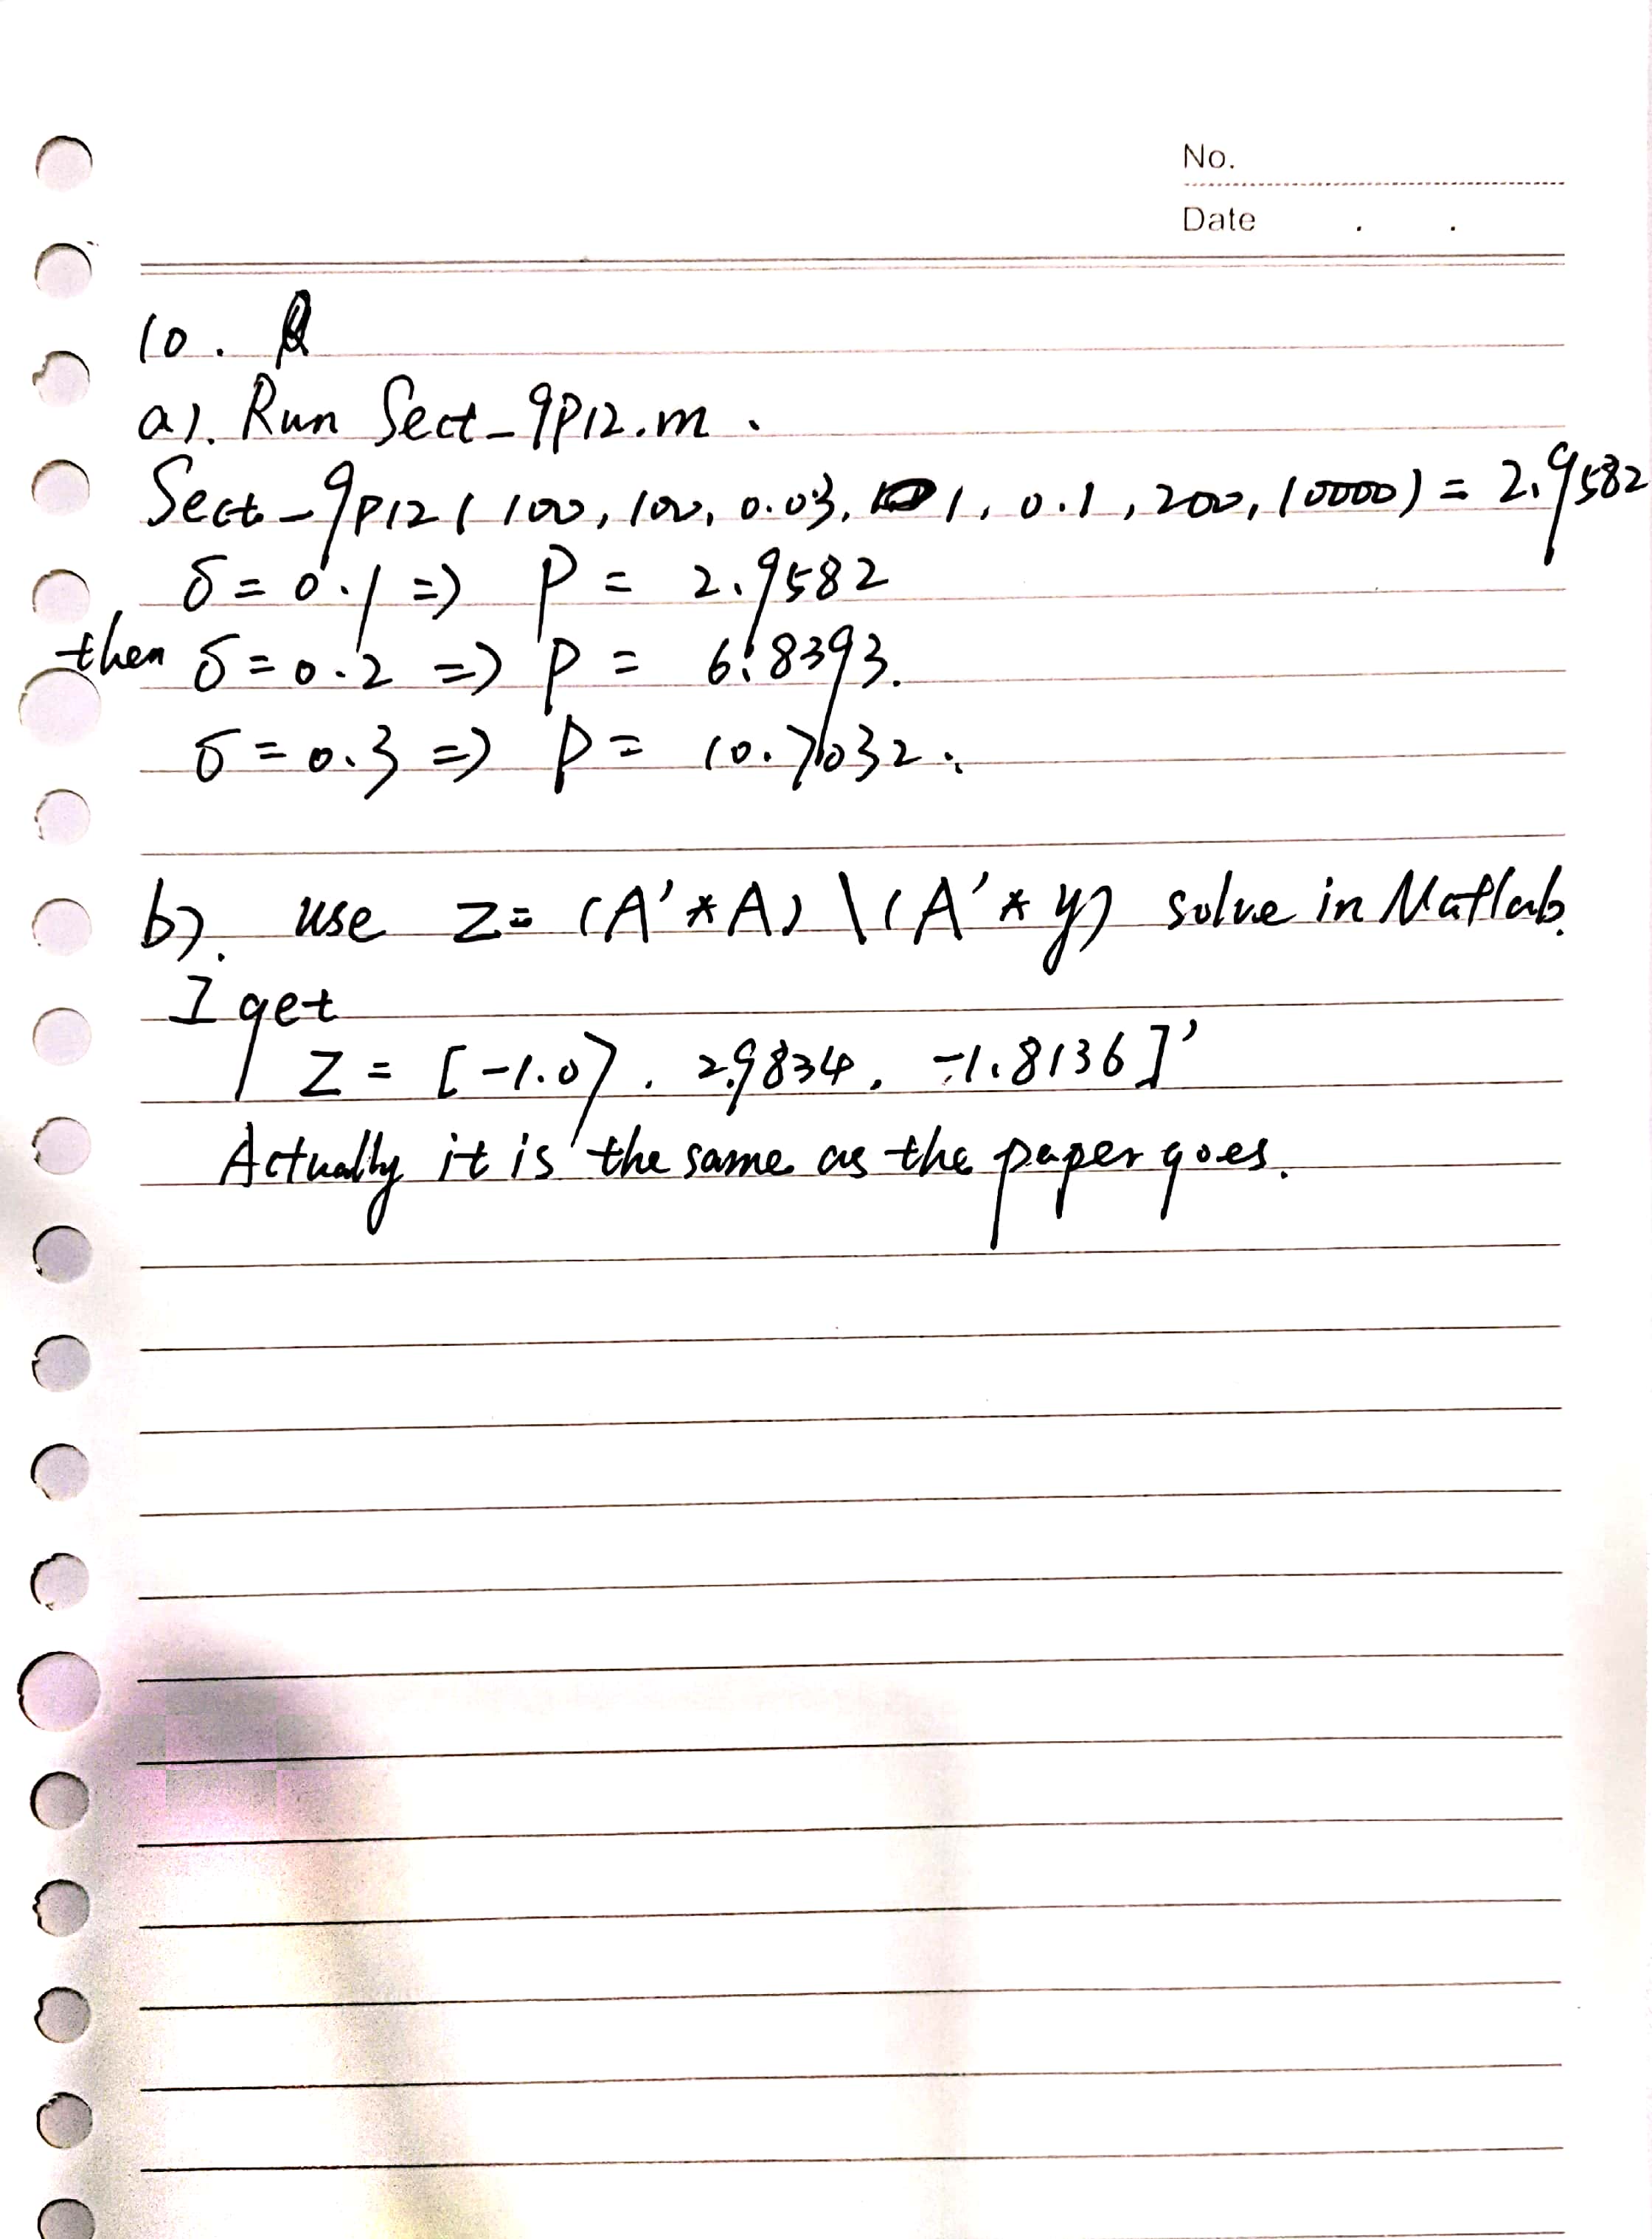 No.
Date . .
10.
a). Run Sect_9P12.m.
Sect_9P12(100, 100, 0.03, 1, 0.1, 200, 10000) = 2.9582
δ = 0.1 => P = 2.9582
then δ = 0.2 => P = 6.8393.
δ = 0.3 => P = 10.7032.
b). use Z = (A'*A)\(A'*y) solve in Matlab.
I get
Z = [-1.07, 2.9834, -1.8136]'
Actually it is the same as the paper goes.